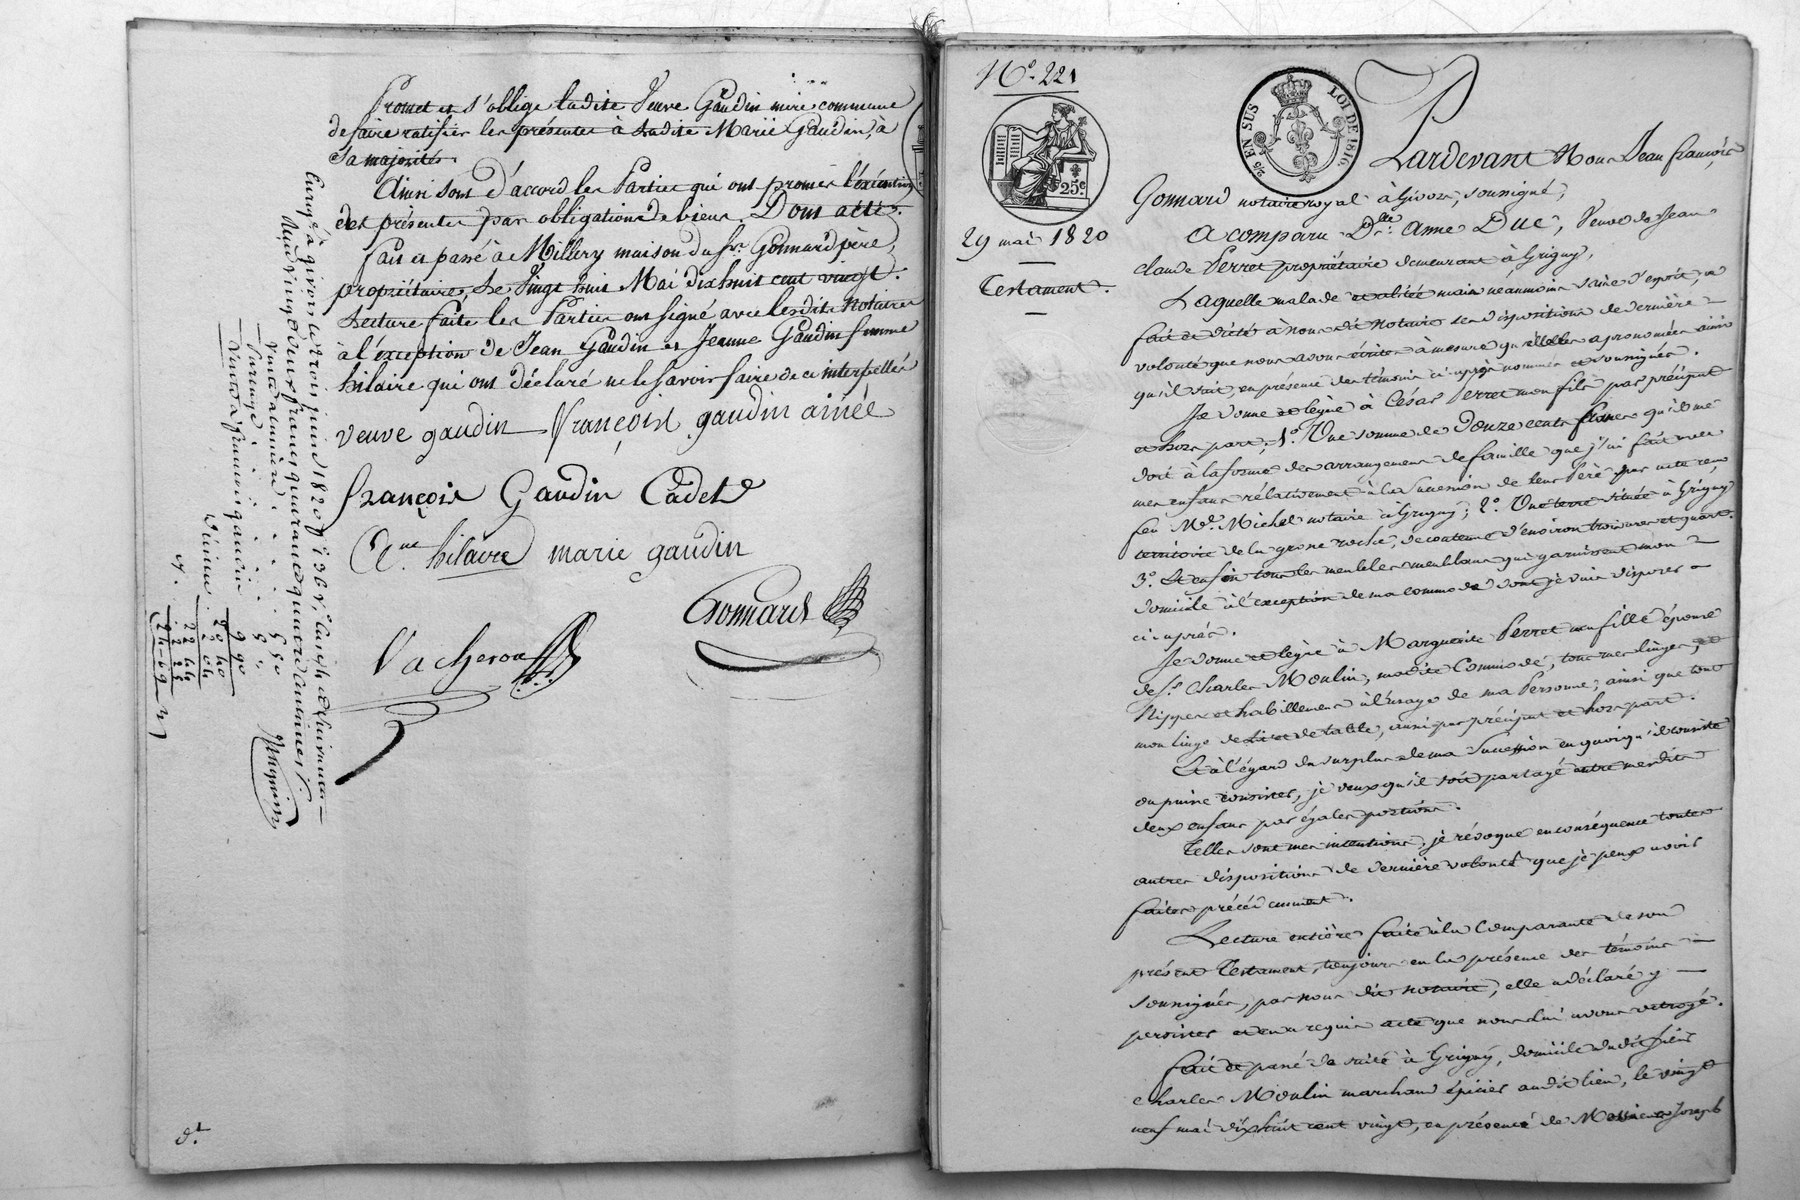 Promet et s'oblige ladite Veuve Gaudin mère commune
de faire ratifier les présentes à ladite Marie Gaudin, à
sa majorité.
Ainsi sont d'accord les Parties qui ont promis l'exécution
des présentes par obligations de biens. Dont acte.
fait et passé à Millery maison du Sr. Gonnard père,
propriétaire, le Vingt huit Mai dix huit cent vingt.
Lecture faite les Parties ont signé avec lesdits Notaires
à l'exception de Jean Gaudin et Jeanne Gaudin femme
hilaire qui ont déclaré ne le savoir faire de ce interpellés
veuve gaudin françois gaudin ainée
françois Gaudin Cadet
hilaire marie gaudin
Gonnard
Vacheron
Enregé à givors le trois juin 1820 fo 136 Vo
Reçu vingt deux francs quarante quatre centimes
N°. 221
25 EN SUS
LOI DE 1816.
25c
29 mai 1820
Testament.
Pardevant Nous Jean françois
Gonnard notaire royal à Givors, soussigné,
A comparu Dlle. Anne Duc, Veuve de Jean
claude Perret propriétaire demeurant à Grigny,
Laquelle malade et alitée mais néanmoins saine d'esprit, a
fait et dicté à nous dit Notaire ses dispositions de dernière
volonté que nous avons écrites à mesure qu'elle les a prononcées ainsi
qu'il suit, en présence des témoins ci après nommés et soussignés.
Je donne et légue à César Perret mon fils par préciput
et hors part, 1°. Une somme de Douze cents francs qu'il me
doit à la forme des arrangemens de famille que j'ai fait avec
mes enfans rélativement à la Succession de leur Père par acte reçu
feu Me. Michel notaire à Grigny; 2°. Une terre située à Grigny
territoire de la grosse roche, de contenue d'environ trois ares et quart.
3°. Et enfin tous les meubles meublans qui garnissent mon
domicile à l'exception de ma commode dont je vais disposer
ci-après.
Je donne et légue à Marguerite Perret ma fille épouse
de Sr. Charles Moulin, madite Commode, tous mes linges, et
Nippes et habillemens à l'usage de ma Personne, ainsi que tout
mon linge de lit et de table, aussi par préciput et hors part.
Et à l'égard du surplus de ma Succession en quoi qu'il consiste
ou puisse consister, je veux qu'il soit partagé entre mesdits
deux enfans par égales portions.
Telles sont mes intentions, je révoque en conséquence toutes
autres dispositions de dernière volonté que je peux avoir
faites précédemment.
Lecture entière faite à la Comparante de son
présent Testament, toujours en la présence des témoins
soussignés, par nous dit notaire, elle a déclaré y
persister et en a requis acte que nous lui avons octroyé.
fait et passé de suite à Grigny, domicile dudit Sieur
Charles Moulin marchand épicier audit lieu, le vingt
neuf mai dix huit cent vingt, en présence de Messieurs Joseph